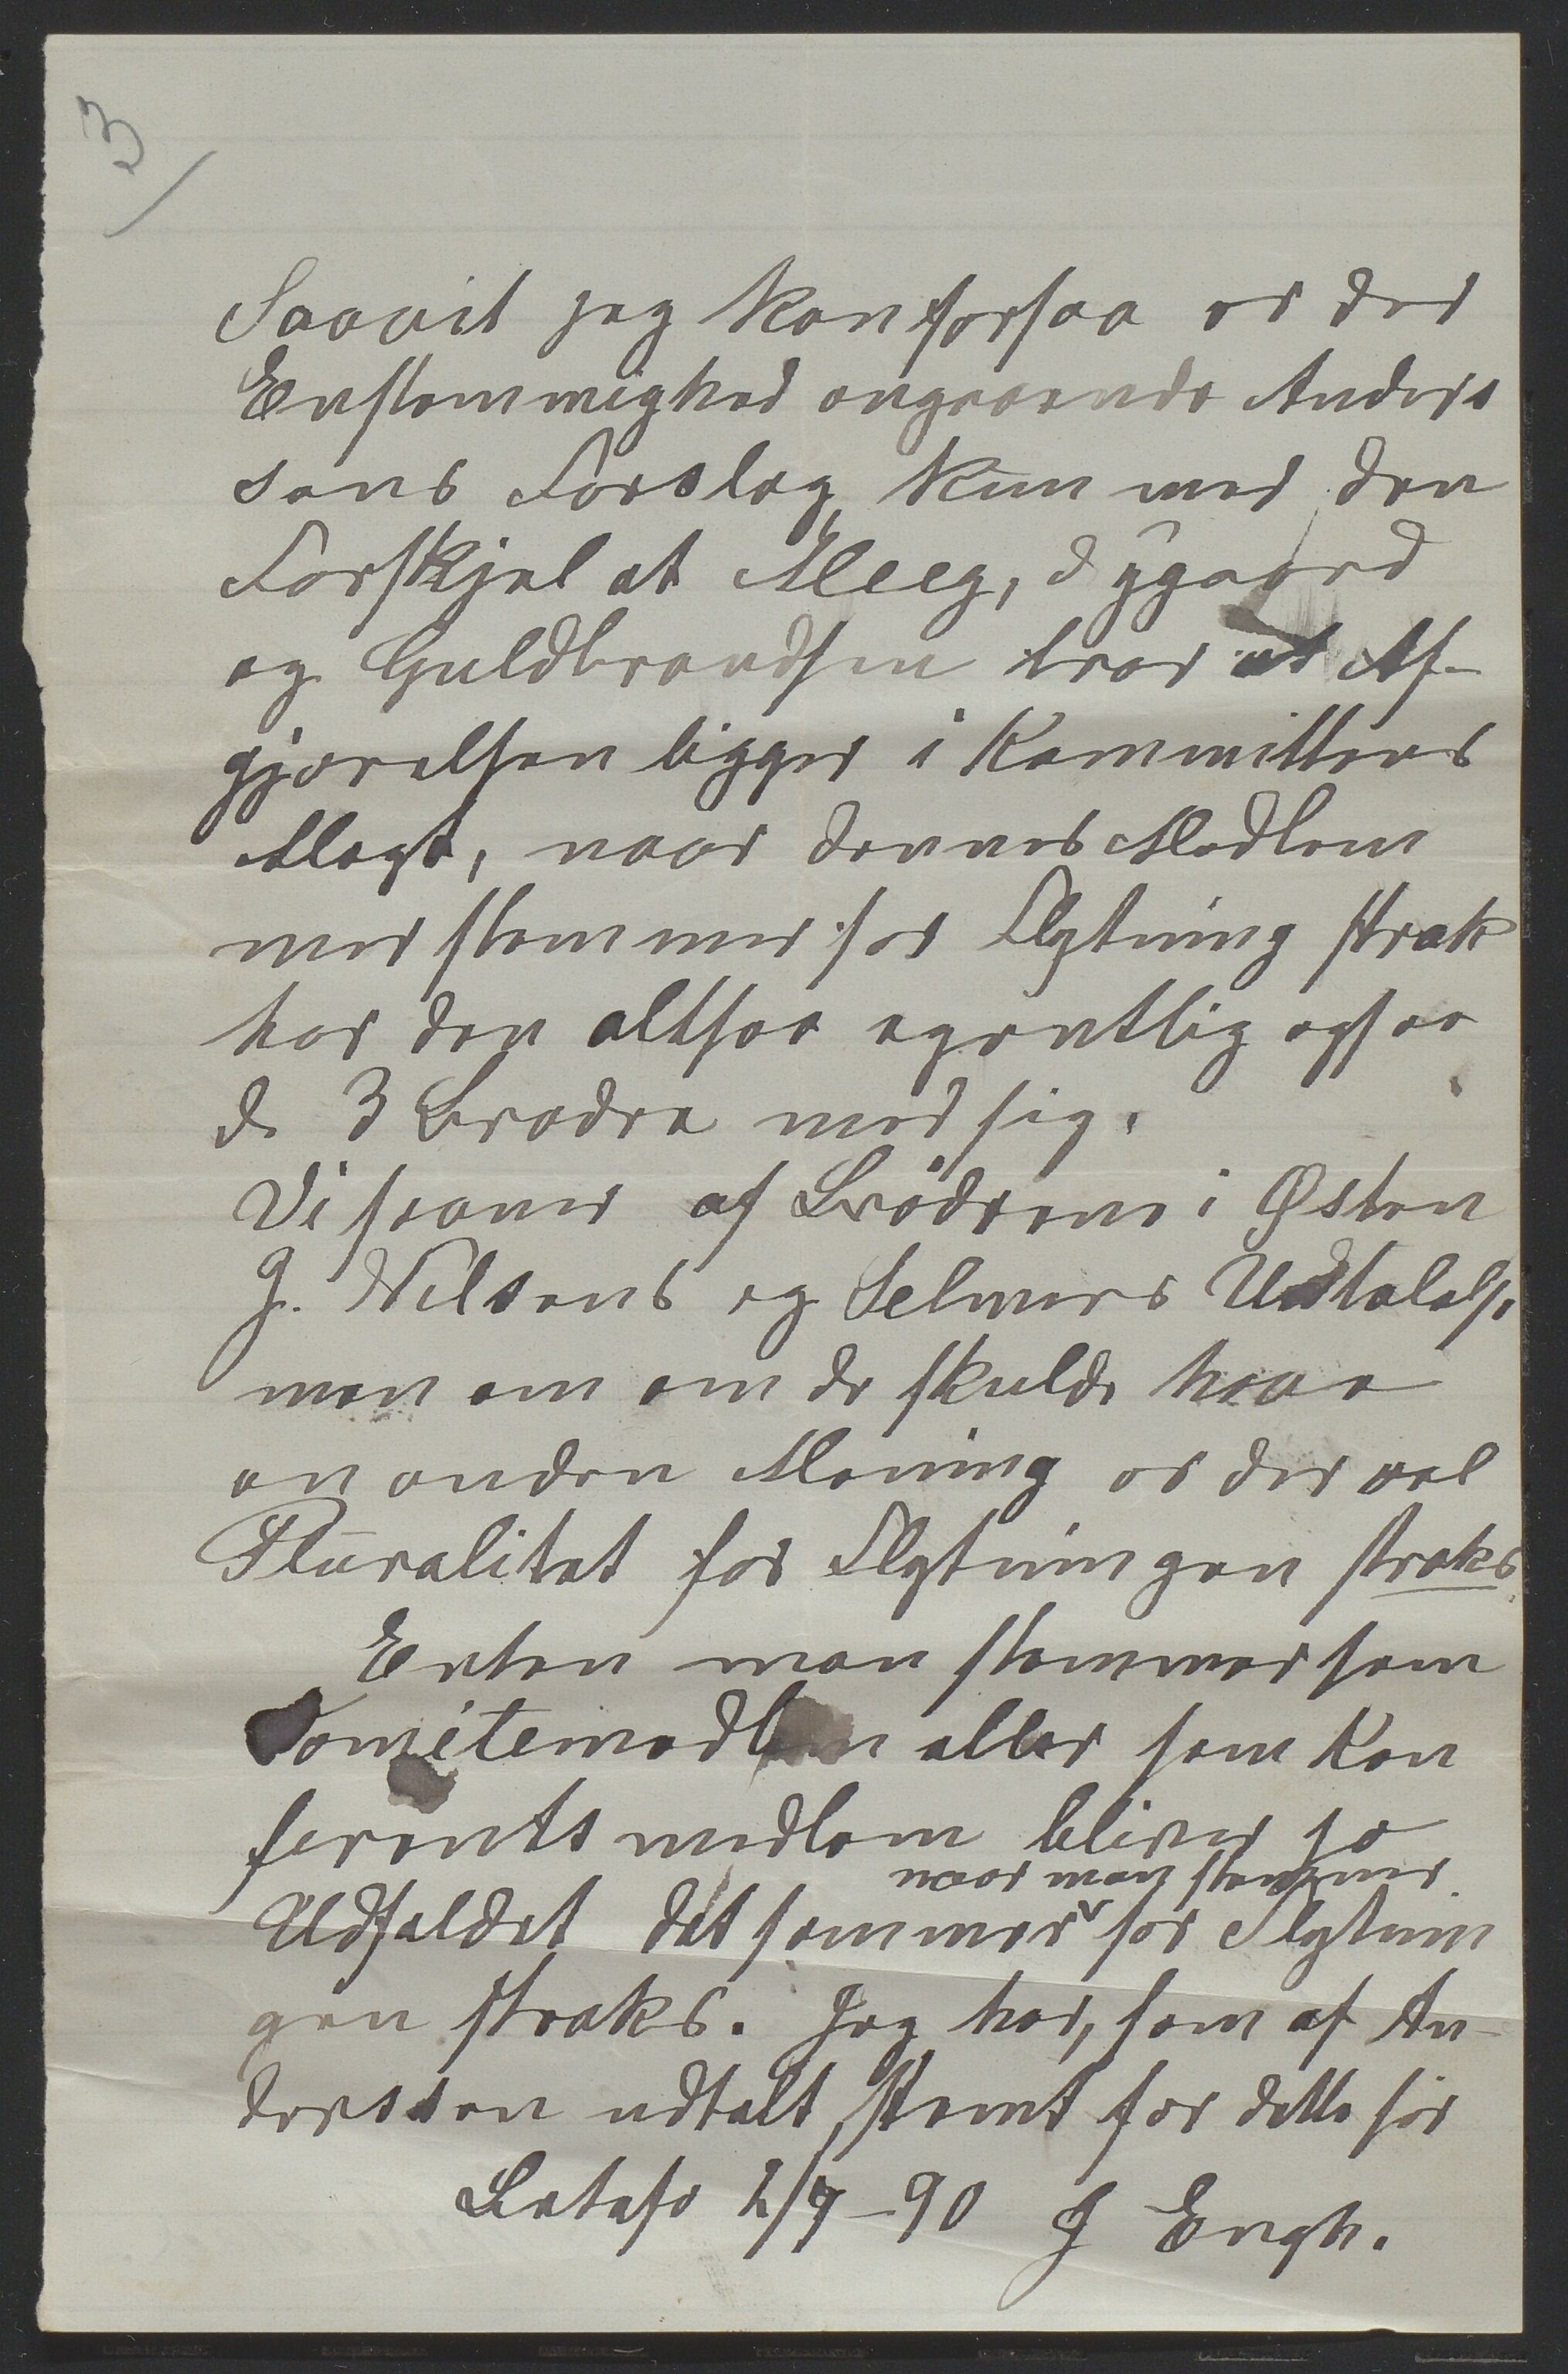 3/
Saavit jeg kan forstaa er der
Enstemmighed angaaende Anders
sens Forslag, kun med den
Forskjel at Meeg, Nygaard
og Guldbrandsen tror at Af-
gjørelsen ligger i Kommitteens
Magt, naar dennes Medlem
mer stemmer for Flytning strak
har den altsaa egentlig ogsaa
de 3 Brødre med sig.
Vi savner af Brødrene i Østen
J. Nilsens og Selmers Udtalelse
men om om de skulde have
en anden Mening er der vel
Pluralitet for Flytningen straks.
Enten man stemmer som
Komitemedlem eller som Kon
ferentsmedlem bliver jo
naar man stemmer
Udfaldet det samme for Flytnin
gen straks. Jeg har, som af An-
derssen udtalt, stemt for dette før
Betafo 2/9-90 J Engh.